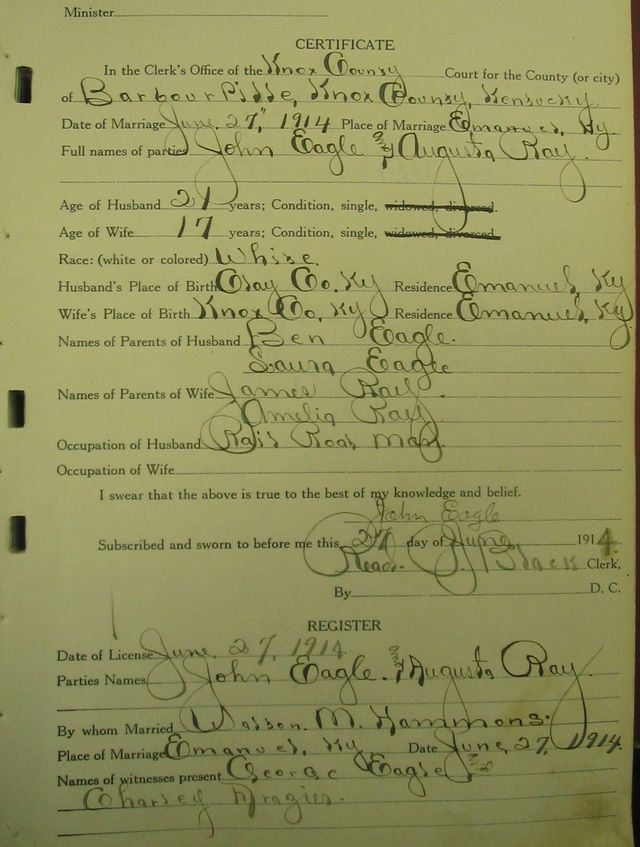 Minister
CERTIFICATE
In the Clerk's Office of the Knox County Court for the County (or city)
of Barbourville, Knox County, Kentucky.
Date of Marriage June. 27, 1914 Place of Marriage Emanuel, Ky.
Full names of parties John Eagle & Augusta Ray.
Age of Husband 21 years; Condition, single, widowed, divorced.
Age of Wife 17 years; Condition, single, widowed, divorced.
Race: (white or colored) White.
Husband's Place of Birth Clay Co. Ky Residence Emanuel, Ky
Wife's Place of Birth Knox Co, Ky Residence Emanuel, Ky
Names of Parents of Husband Ben Eagle.
Laura Eagle
Names of Parents of Wife James Ray.
Amelia Ray.
Occupation of Husband Rail Road Man.
Occupation of Wife
I swear that the above is true to the best of my knowledge and belief.
John Eagle
Subscribed and sworn to before me this 27 day of June 1914.
Read. Black Clerk,
By D. C.
REGISTER
Date of License June. 27, 1914
Parties Names John Eagle. & Augusta Ray.
By whom Married Watson. M. Hammons.
Place of Marriage Emanuel, Ky Date June, 27, 1914.
Names of witnesses present George Eagle &
Charley Frazier.